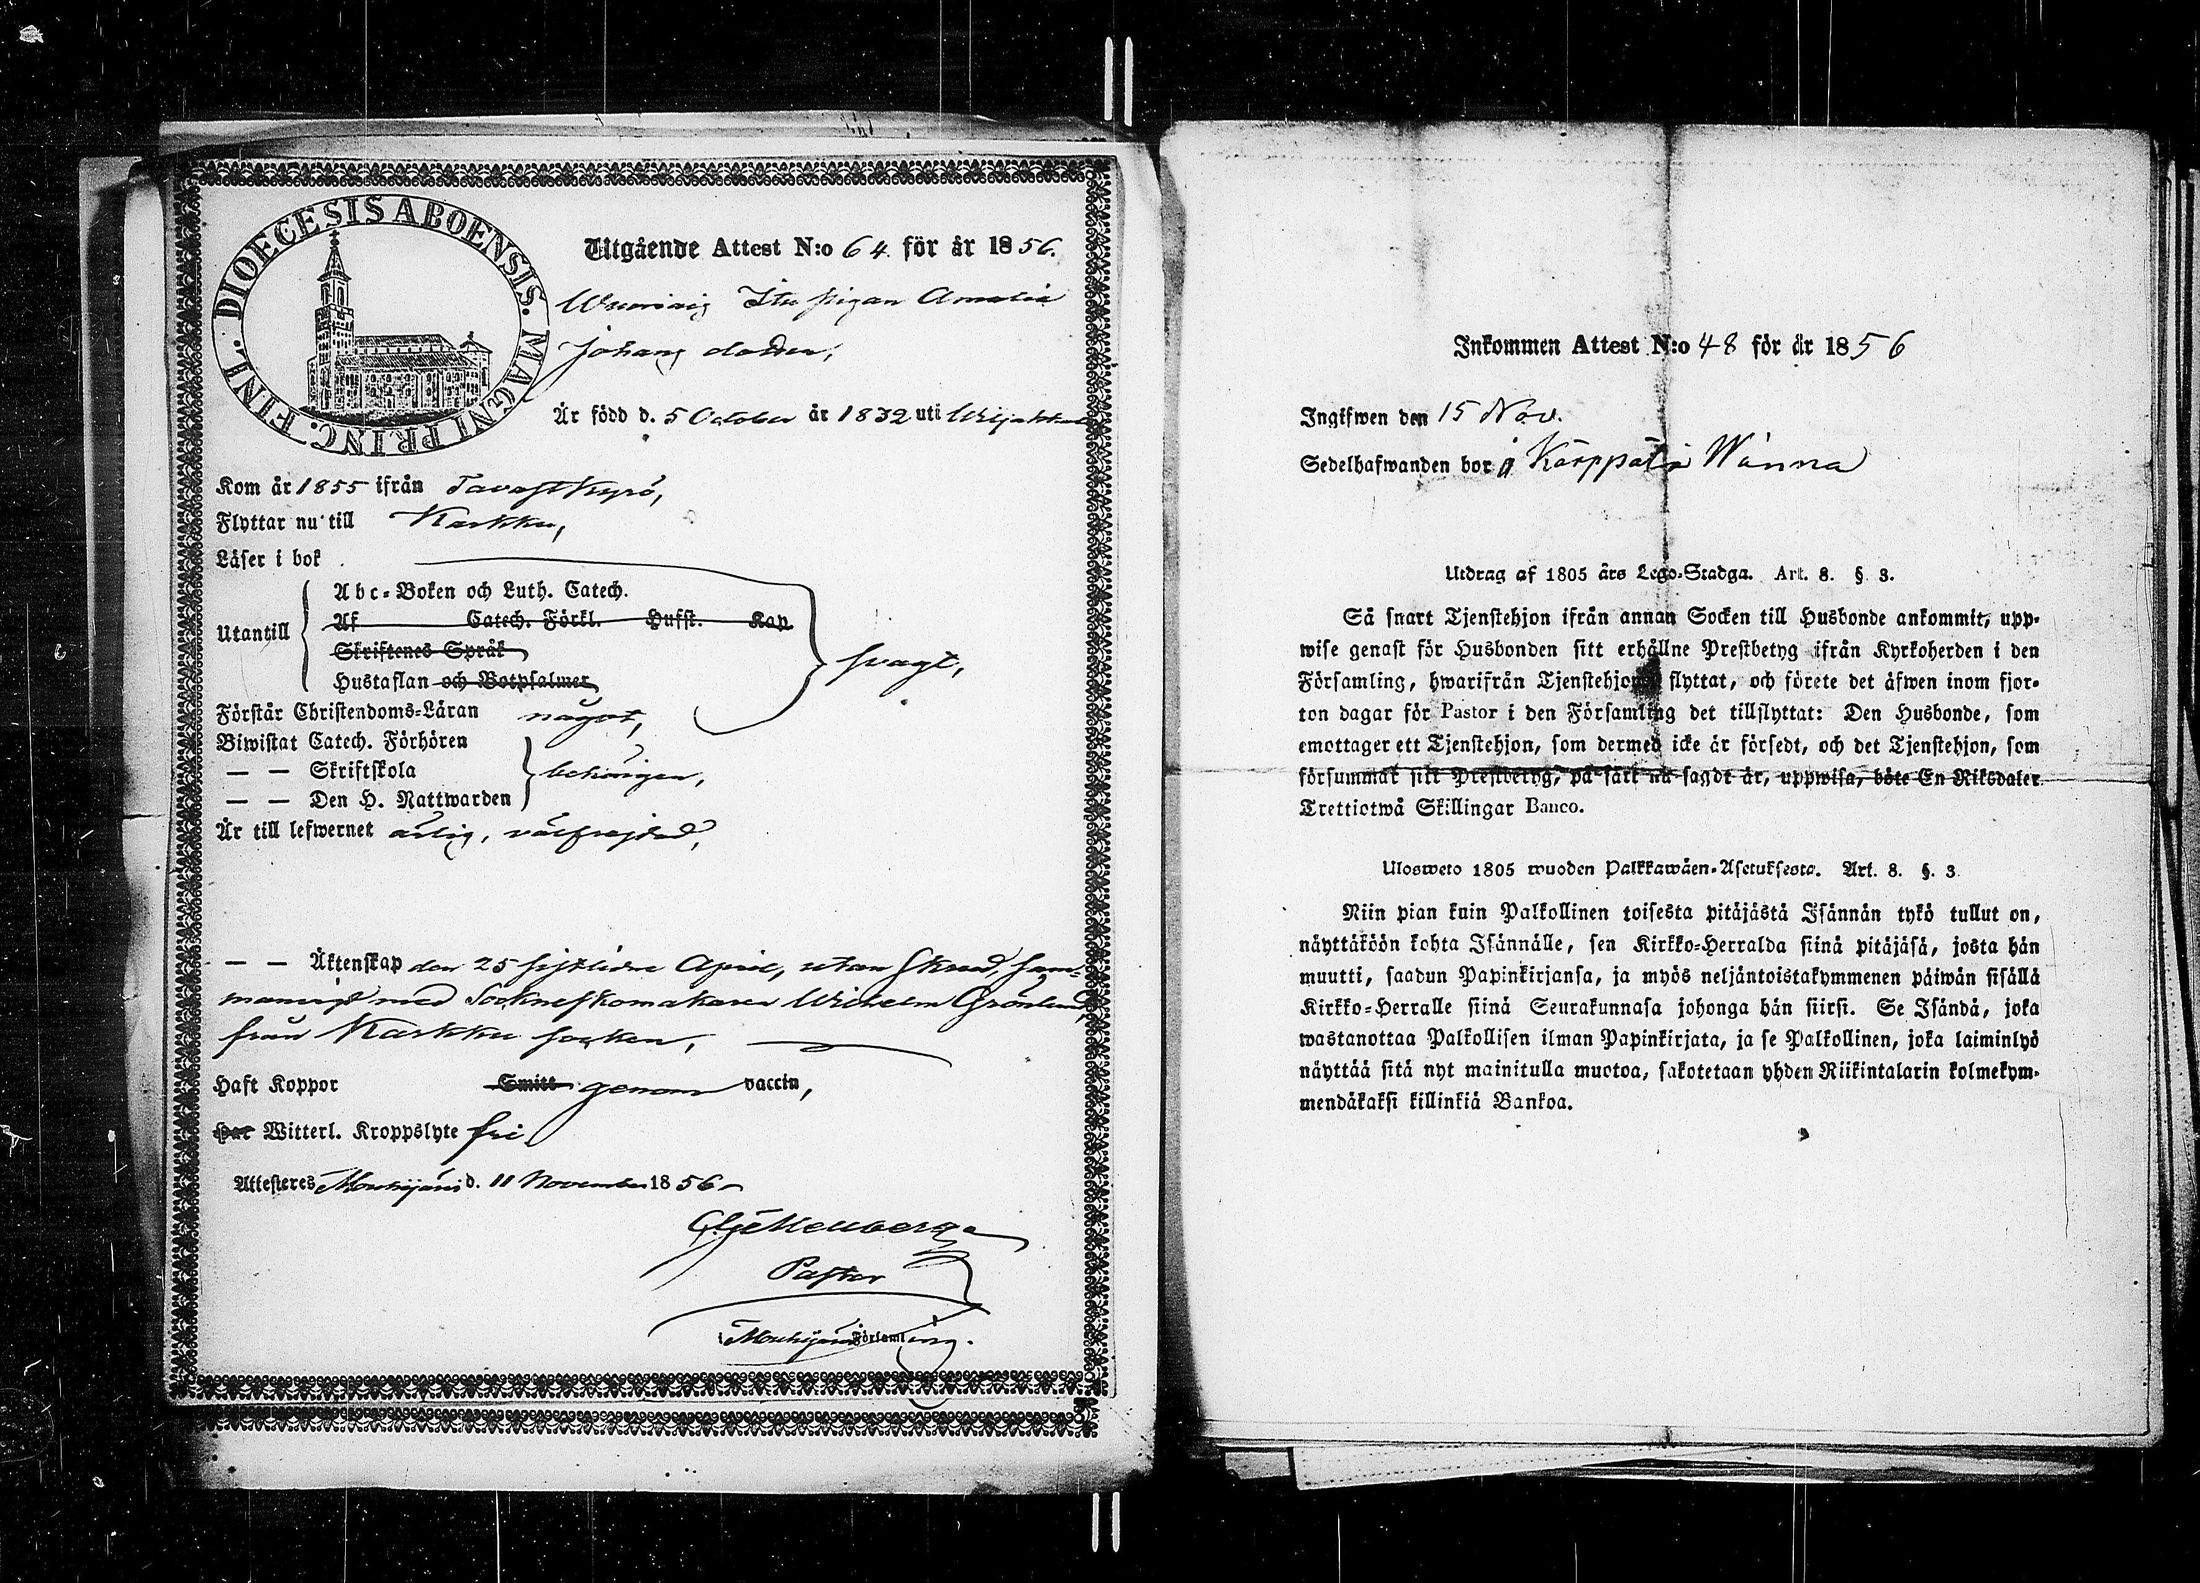 DIOECESIS ABOENSIS. MAGNI PRINC. FINL.
Utgående Attest N:o 64 för år 1856.
pigan Amalia
Johans dotter,
Är född d. 5 October år 1832 uti
Kom år 1855 ifrån Tavastkyrö,
Flyttar nu till Karkku,
Läser i bok
Utantill
Abc-Boken och Luth. Catech.
Af Catech. Förkl. Hufst. Kap
Skriftenes Språk
Hustaflan och Botpsalmer
svagt,
Förstår Christendoms-Läran något,
Biwistat Catech. Förhören
— — Skriftskola
— — Den H. Nattwarden
behörigen,
Är till lefwernet ärlig, välfrejdad,
— — Äktenskap den 25 sistlidne April, utan Skrud, sam-
manvigd med Sockneskomakaren Wilhelm Grönlund,
från Karkku socken,
Haft Koppor Smitt genom vaccin,
Har Witterl. Kroppslyte fri
Attesteres Mouhijärvi d. 11 November 1856
Pastor
i Mouhijärvi Församling.
Inkommen Attest N:o 48 för år 1856
Ingifwen den 15 Nov.
Sedelhafwanden bor å Karppala Wänna
Utdrag af 1805 års Lego-Stadga. Art. 8. § 3.
Så snart Tjenstehjon ifrån annan Socken till Husbonde ankommit, upp-
wise genast för Husbonden sitt erhållne Prestbetyg ifrån Kyrkoherden i den
Församling, hwarifrån Tjenstehjonet flyttat, och förete det äfwen inom fjor-
ton dagar för Pastor i den Församling det tillflyttat: Den Husbonde, som
emottager ett Tjenstehjon, som dermed icke är försedt, och det Tjenstehjon, som
försummat sitt Prestbetyg, på sätt nu sagdt är, uppwisa, böte En Riksdaler
Trettiotwå Skillingar Banco.
Ulosweto 1805 wuoden Palkkawäen-Asetuksesta. Art. 8. §. 3
Niin pian kuin Palkollinen toisesta pitäjästä Isännän tykö tullut on,
näyttäköön kohta Isännälle, sen Kirkko-Herralda siinä pitäjäsä, josta hän
muutti, saadun Papinkirjansa, ja myös neljäntoistakymmenen päiwän sisällä
Kirkko-Herralle siinä Seurakunnasa johonga hän siirsi. Se Isändä, joka
wastanottaa Palkollisen ilman Papinkirjata, ja se Palkollinen, joka laiminlyö
näyttää sitä nyt mainitulla muotoa, sakotetaan yhden Riikintalarin kolmekym-
mendäkaksi killinkiä Bankoa.